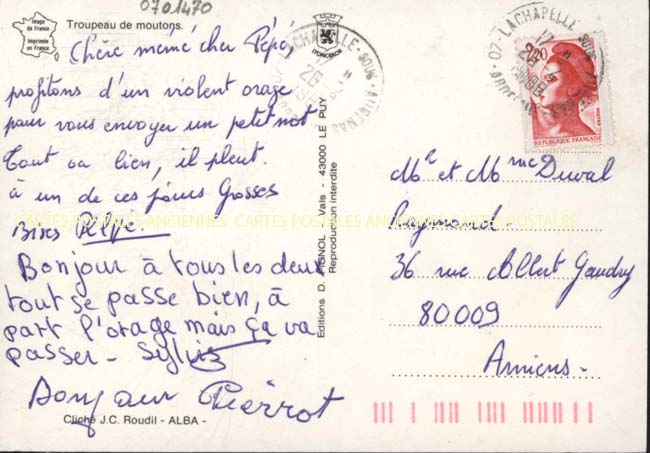 0701470
Image
de France
Imprimée
en France
Troupeau de moutons.
Chère mémé cher Pépé
profitons d'un violent orage
pour vous envoyer un petit mot
Tout va bien, il pleut.
à un de ces jours Grosses
Bises
Bonjour à tous les deux
tout se passe bien, à
part l'orage mais ça va
passer - Sylvie
Bonjour Pierrot
Cliché J.C. Roudil - ALBA -
Editions D. - Vals - 43000 LE PUY
Reproduction interdite
07 LACHAPELLE SOUS AUBENAS
26
07 - LACHAPELLE SOUS
2,20
REPUBLIQUE FRANÇAISE
Mr et Mme Duval
Raymond -
36 rue Albert Gaudry
80009
Amiens -
CARTES POSTALES ANCIENNES CARTES POSTALES ANCIENNES CARTES POSTALES